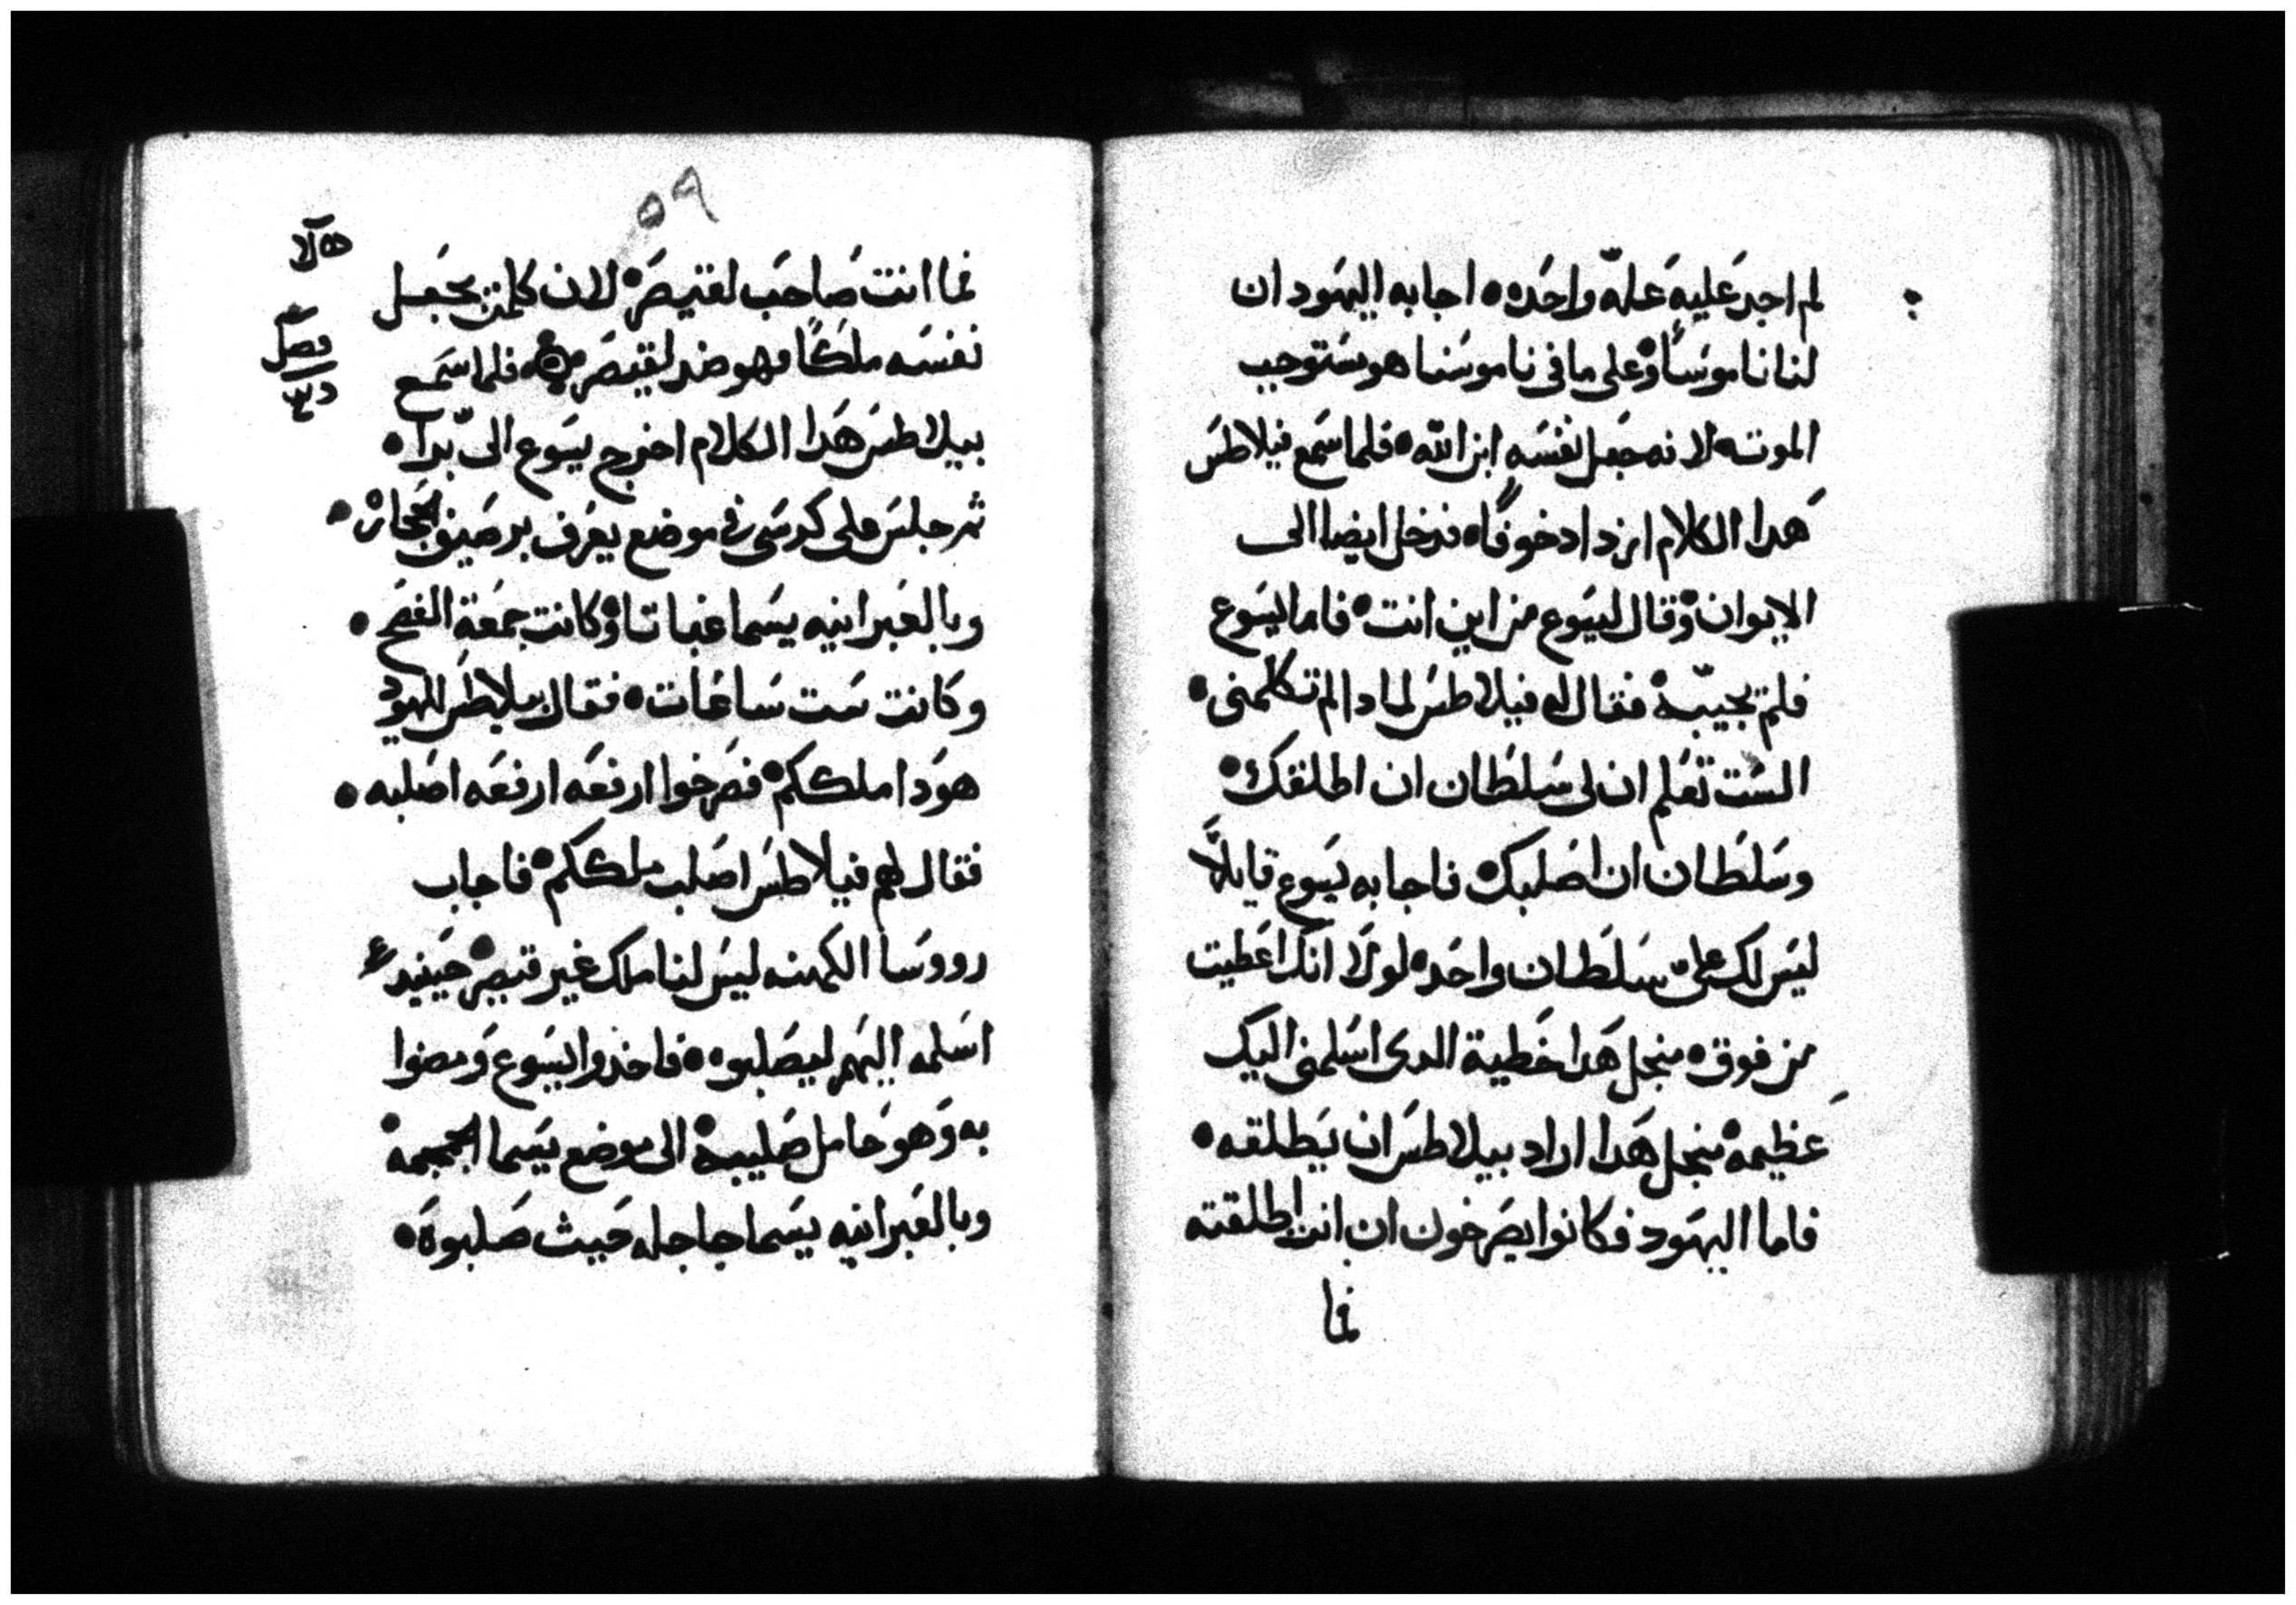 لم اجد عليه علّه واحده • اجابه اليهود ان
لنا ناموسًا • وعلى ما فى ناموسنا هو ستوجب
الموت • لانه جعل نفسه ابن الله • فلما سمع فيلاطس
هدا الكلام ازداد خوفًا • فدخل ايضا الى
الايوان • وقال ليسوع من اين انت • فاما يسوع
فلم يجيبه • فقال له فيلاطس لمادا لم تكلمنى •
الست تعلم ان لى سلطان ان اطلقك •
وسلطان ان اصلبك • فاجابه يسوع قايلًا
ليس لك علىّ سلطان واحده • لولا انك اعطيت
من فوق • منجل هدا خطية الدى اسلمنى اليك
عظيمه • منجل هدا اراد بيلاطس ان يطلقه •
فاما اليهود فكانوا يصرخون ان انت اطلقته
فما
٥٩
فما انت صاحب لقيصر • لان كلمن يجعل
نفسه ملكًا فهو ضد لقيصر • فلما سمع
فصل
بيلاطس هدا الكلام اخرج يسوع الى برا •
ثم جلس على كرسى فى موضع يعرف برصيف الحجاره •
وبالعبرانيه يسما غباتا • وكانت جمعة الفصح •
وكانت ست ساعات • فقال بيلاطس لليهود
هودا ملككم • فصرخوا ارفعه ارفعه اصلبه •
فقال لهم فيلاطس اصلب ملككم • فاجاب
رووسا الكهنه ليس لنا ملك غير قيصر • حينيد
اسلمه اليهم ليصلبوه • فاخدوا يسوع ومضوا
به وهو حامل صليبه • الى موضع يسما الجمجمه •
وبالعبرانيه يسما جاجله حيث صلبوه •